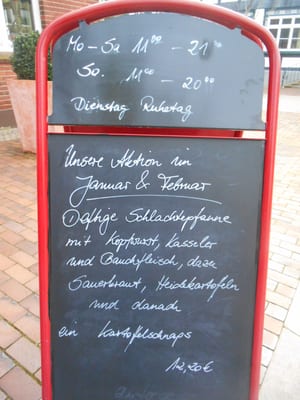 Mo - Sa 11⁰⁰ - 21⁰⁰
So. 11⁰⁰ - 20⁰⁰
Dienstag Ruhetag
Unsere Aktion im
Januar & Februar
① deftige Schlachtepfanne
mit Kopfwurst, Kasseler
und Bauchfleisch, dazu
Sauerkraut, Heidekartoffeln
und danach
ein Kartoffelschnaps
12,20€